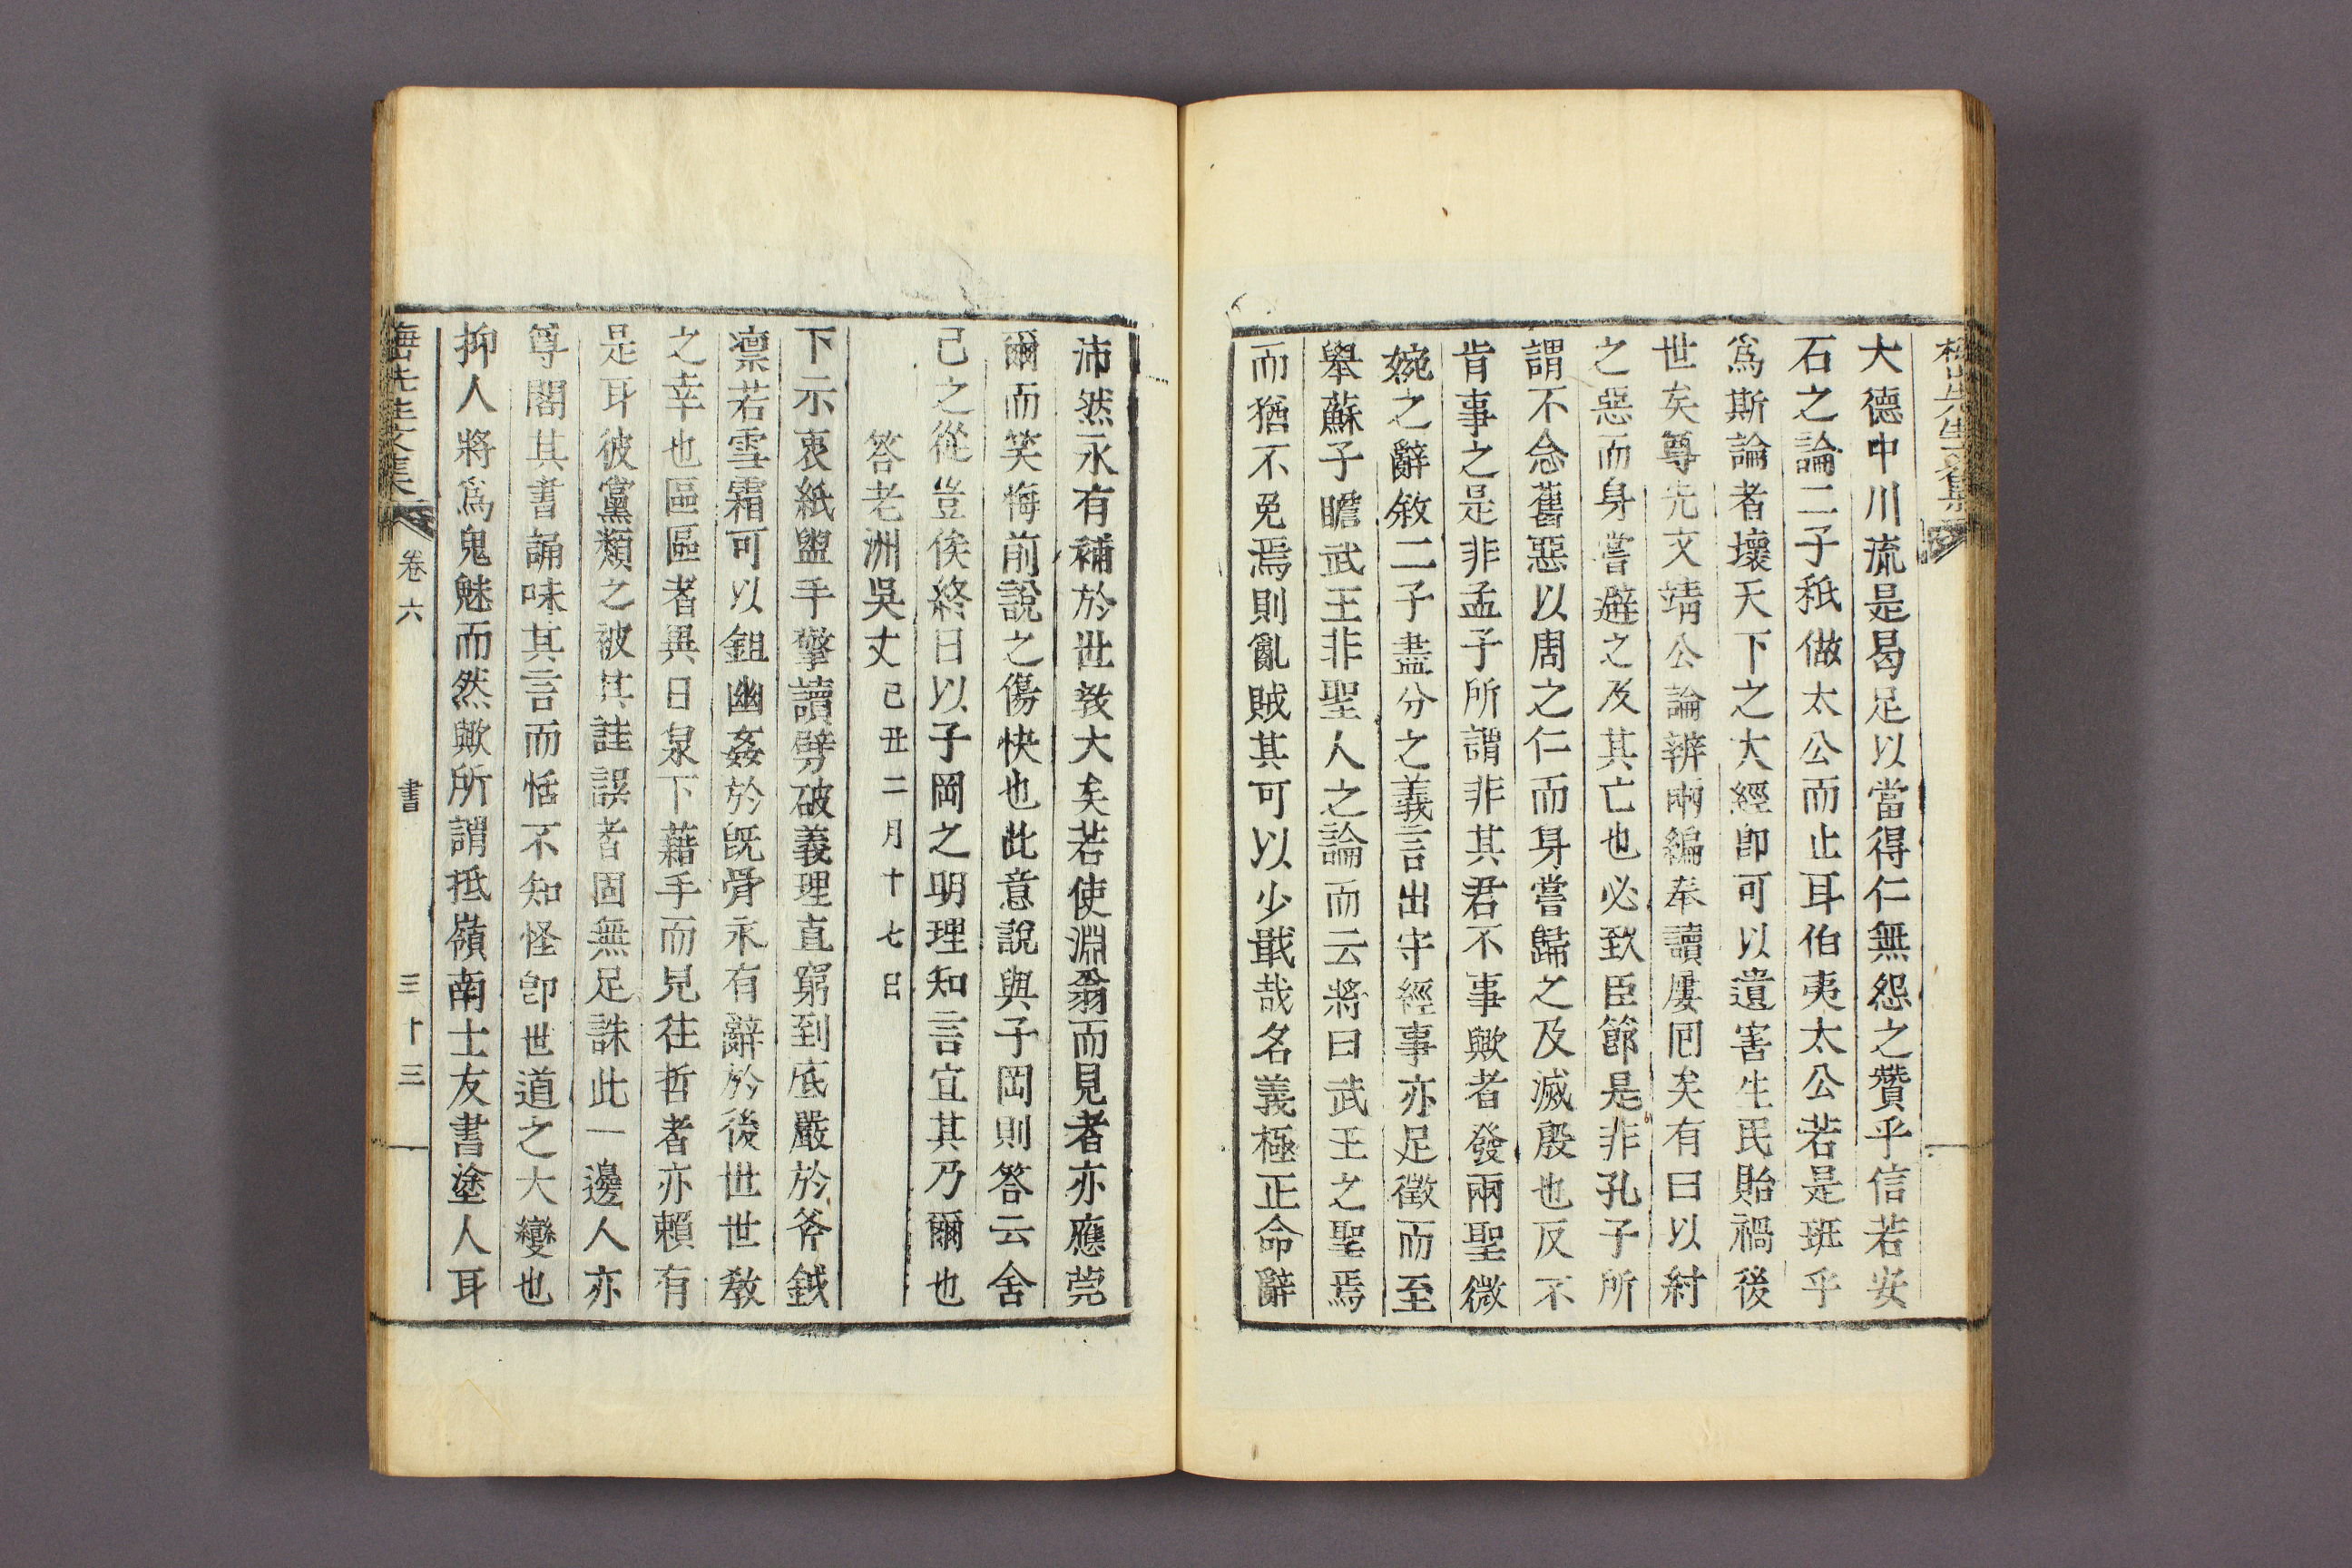 梅山先生文集
大德中川流是曷足以當得仁無怨之贊乎信若安
石之論二子秖做太公而止耳伯夷太公若是班乎
爲斯論者壞天下之大經卽可以遺害生民貽禍後
世矣尊先文靖公論辨兩編奉讀屢回矣有曰以紂
之惡而身嘗避之及其亡也必致臣節是非孔子所
謂不念舊惡以周之仁而身嘗歸之及滅殷也反不
肯事之是非孟子所謂非其君不事歟者發兩聖微
婉之辭敘二子盡分之義言出守經事亦足徵而至
舉蘇子瞻武王非聖人之論而云將曰武王之聖焉
而猶不免焉則亂賊其可以少戢哉名義極正命辭
沛然永有補於世敎大矣若使淵翁而見者亦應莞
爾而笑悔前說之傷快也此意說與子岡則答云舍
己之從豈俟終日以子岡之明理知言宜其乃爾也
答老洲吳丈己丑二月十七日
下示衷紙盥手擎讀劈破義理直窮到底嚴於斧鉞
凛若雪霜可以鉏幽姦於旣骨永有辭於後世世敎
之幸也區區者異日泉下藉手而見往哲者亦賴有
是耳彼黨類之被其詿誤者固無足誅此一邊人亦
尊閣其書誦味其言而恬不知怪卽世道之大變也
抑人將爲鬼魅而然歟所謂抵嶺南士友書塗人耳
梅山先生文集 卷六 書 三十三